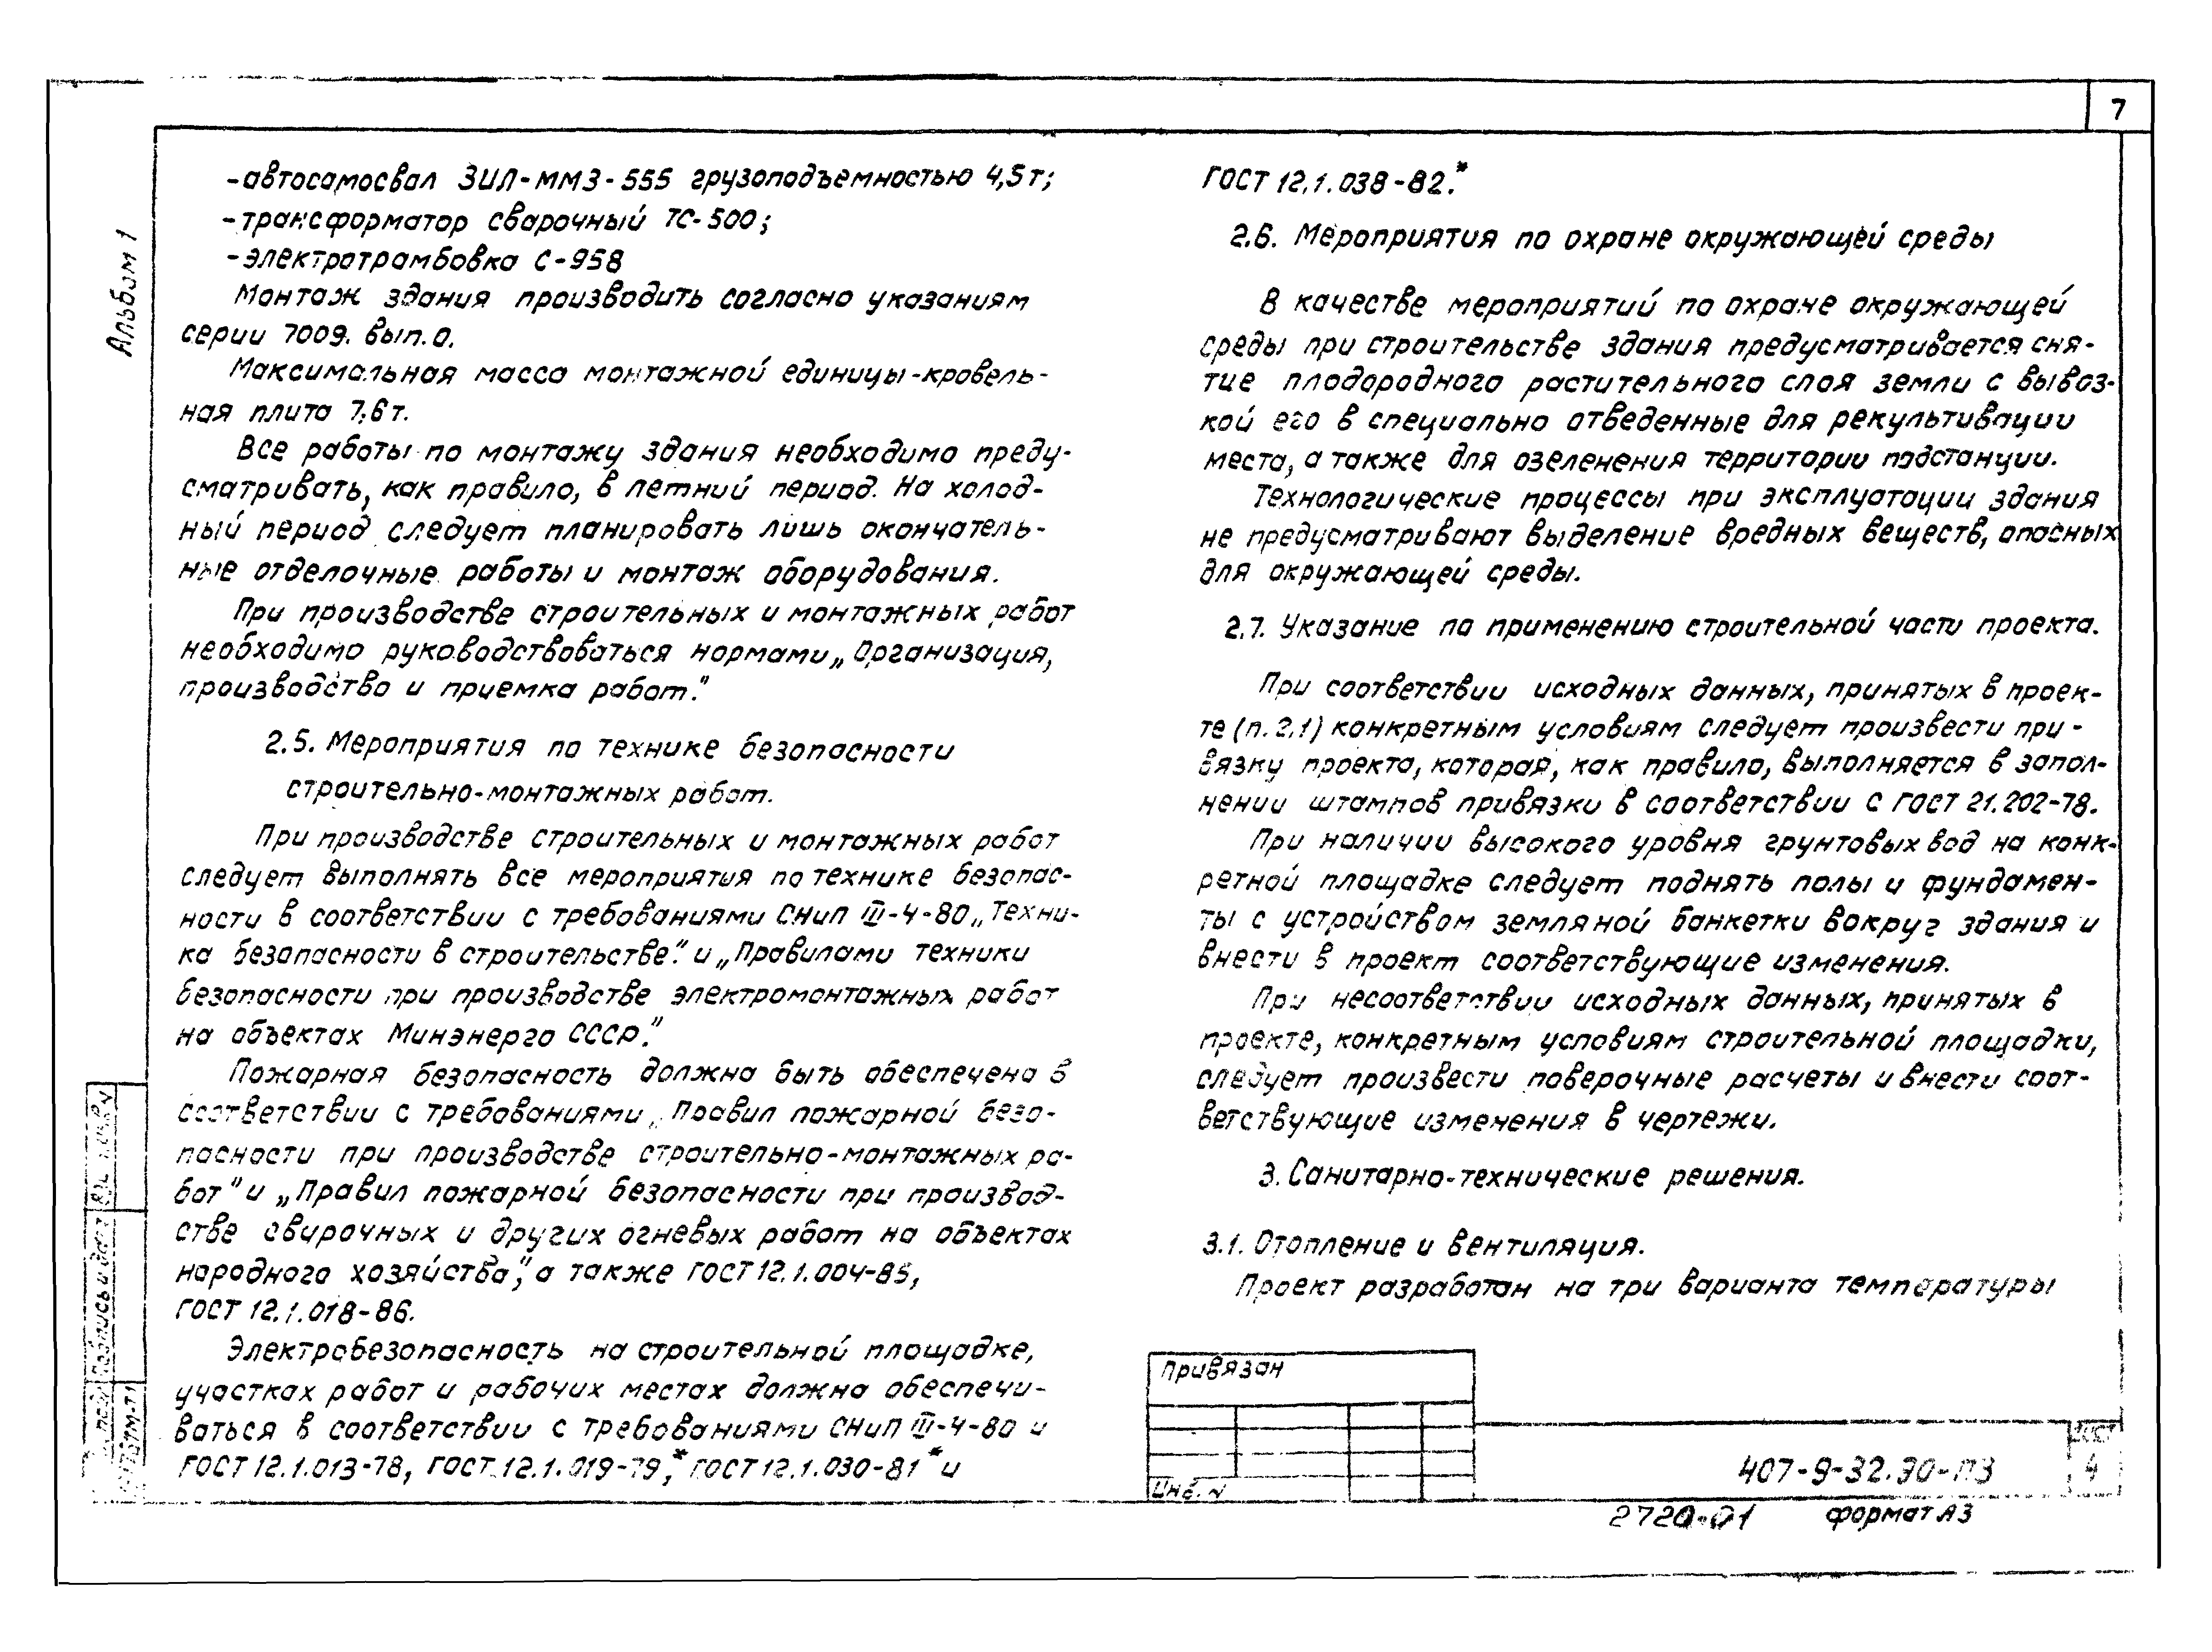 7
Альбом 1
-автосамосвал ЗИЛ-ММЗ-555 грузоподъемностью 4,5т;
-трансформатор сварочный ТС-500;
-электротрамбовка С-958
Монтаж здания производить согласно указаниям
серии 7009. вып.0.
Максимальная масса монтажной единицы-кровель-
ная плита 7,6т.
Все работы по монтажу здания необходимо преду-
сматривать, как правило, в летний период. На холод-
ный период следует планировать лишь окончатель-
ные отделочные работы и монтаж оборудования.
При производстве строительных и монтажных работ
необходимо руководствоваться нормами „Организация,
производство и приемка работ."
2.5. Мероприятия по технике безопасности
строительно-монтажных работ.
При производстве строительных и монтажных работ
следует выполнять все мероприятия по технике безопас-
ности в соответствии с требованиями СНиП III-4-80 „Техни-
ка безопасности в строительстве". и „Правилами техники
безопасности при производстве электромонтажных работ
на объектах Минэнерго СССР."
Пожарная безопасность должна быть обеспечена в
соответствии с требованиями „Правил пожарной безо-
пасности при производстве строительно-монтажных ра-
бот" и „Правил пожарной безопасности при производ-
стве сварочных и других огневых работ на объектах
народного хозяйства", а также ГОСТ 12.1.004-85,
ГОСТ 12.1.018-86.
Электробезопасность на строительной площадке,
участках работ и рабочих местах должна обеспечи-
ваться в соответствии с требованиями СНиП III-4-80 и
ГОСТ 12.1.013-78, ГОСТ 12.1.019-79,* ГОСТ 12.1.030-81* и
ГОСТ 12.1.038-82.*
2.6. Мероприятия по охране окружающей среды
В качестве мероприятий по охране окружающей
среды при строительстве здания предусматривается сня-
тие плодородного растительного слоя земли с вывоз-
кой его в специально отведенные для рекультивации
места, а также для озеленения территории подстанции.
Технологические процессы при эксплуатации здания
не предусматривают выделение вредных веществ, опасных
для окружающей среды.
2.7. Указание по применению строительной части проекта.
При соответствии исходных данных, принятых в проек-
те (п. 2.1) конкретным условиям следует произвести при-
вязку проекта, которая, как правило, выполняется в запол-
нении штампов привязки в соответствии с ГОСТ 21.202-78.
При наличии высокого уровня грунтовых вод на конк-
ретной площадке следует поднять полы и фундамен-
ты с устройством земляной банкетки вокруг здания и
внести в проект соответствующие изменения.
При несоответствии исходных данных, принятых в
проекте, конкретным условиям строительной площадки,
следует произвести поверочные расчеты и внести соот-
ветствующие изменения в чертежи.
3. Санитарно-технические решения.
3.1. Отопление и вентиляция.
Проект разработан на три варианта температуры
Привязан
Инв. N
407-9-32.90-ПЗ
Лист
4
2720-01
формат А3
Подпись и дата